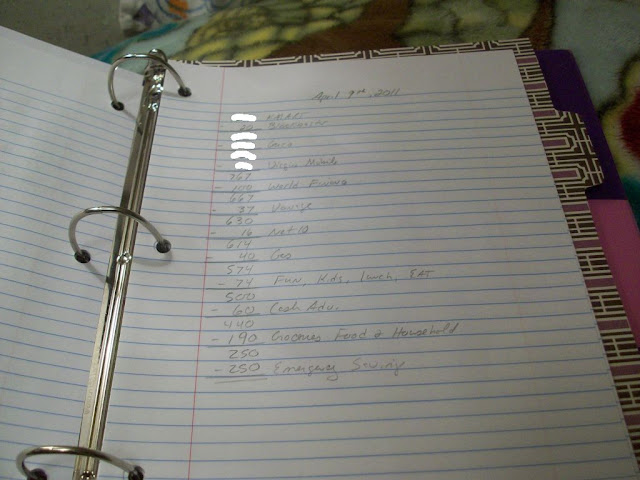 April 9th, 2011
Virgin Mobile
767
- 100 World Finance
667
- 37 Vonage
630
- 16 Net 10
614
- 40 Gas
574
- 74 Fun, Kids, lunch, EAT
500
- 60 Cash Adv.
440
- 190 Groceries Food & Household
250
- 250 Emergency Savings